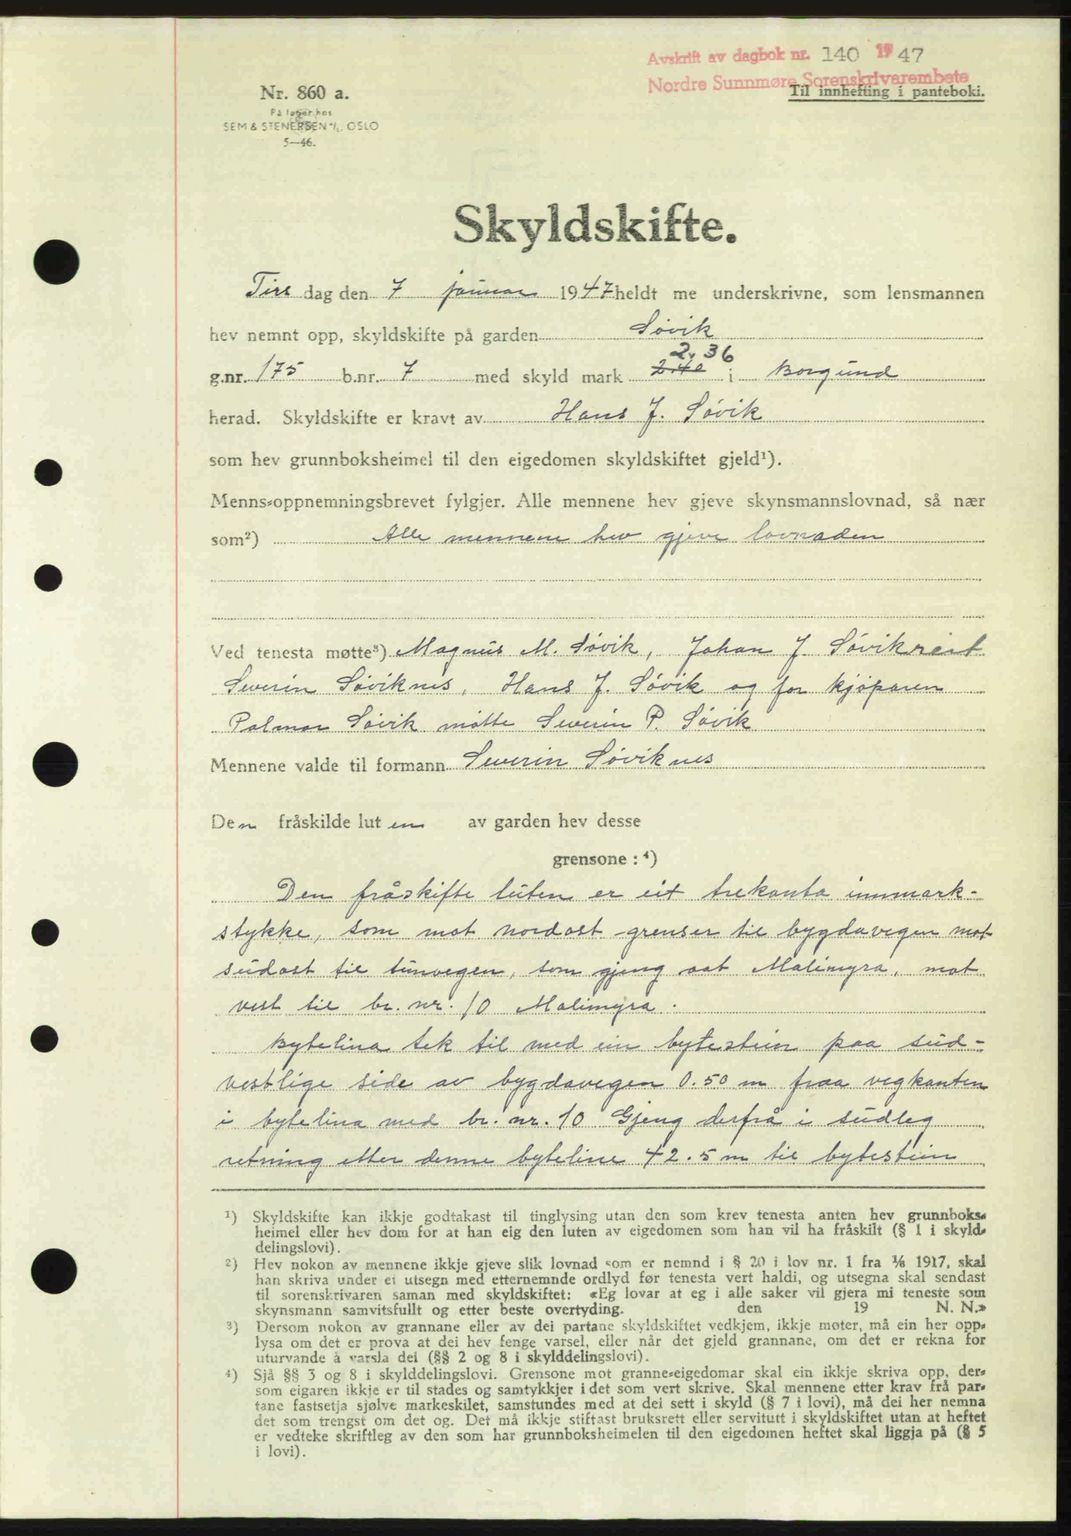 Avskrift av dagbok nr. 140 1947
Nordre Sunnmøre Sorenskrivarembete
Til innhefting i panteboki.
Nr. 860 a.
På lager hos
SEM & STENERSEN A/S. OSLO
5—46.
Skyldskifte.
Tirs dag den 7 januar 1947 heldt me underskrivne, som lensmannen
hev nemnt opp, skyldskifte på garden Søvik
2,36
g.nr. 175 b.nr. 7 med skyld mark 2.40 i Borgund
herad. Skyldskifte er kravt av Hans J. Søvik
som hev grunnboksheimel til den eigedomen skyldskiftet gjeld¹).
Menns-oppnemningsbrevet fylgjer. Alle mennene hev gjeve skynsmannslovnad, så nær
som²) Alle mennene hev gjeve lovnaden
Ved tenesta møtte³) Magnus M. Søvik, Johan J. Søvikneset
Severin Søviknes, Hans J. Søvik og for kjøparen
Palmar Søvik møtte Severin P. Søvik
Mennene valde til formann Severin Søviknes
Den fråskilde luten av garden hev desse
grensone : ⁴)
Den fråskifte luten er eit trekanta innmark-
stykke, som mot nordost grenser til bygdavegen mot
sudost til tunvegen, som gjeng aat Malimyra, mot
vest til br. nr. 10 Malimyra.
Bytelina tek til med ein bytestein paa sud-
vestlige side av bygdavegen 0.50 m fraa vegkanten
i bytelina med br. nr. 10 Gjeng derfrå i sudleg
retning etter denne byteline 42.5 m til bytestein
¹) Skyldskifte kan ikkje godtakast til tinglysing utan den som krev tenesta anten hev grunnboks-
heimel eller hev dom for at han eig den luten av eigedomen som han vil ha fråskilt (§ 1 i skyld-
delingslovi).
²) Hev nokon av mennene ikkje gjeve slik lovnad som er nemnd i § 20 i lov nr. 1 fra ⅙ 1917, skal
han skriva under ei utsegn med etternemnde ordlyd før tenesta vert haldi, og utsegna skal sendast
til sorenskrivaren saman med skyldskiftet: «Eg lovar at eg i alle saker vil gjera mi teneste som
skynsmann samvitsfullt og etter beste overtyding. den 19 N. N.»
³) Dersom nokon av grannane eller av dei partane skyldskiftet vedkjem, ikkje møter, må ein her opp-
lysa om det er prova at dei hev fenge varsel, eller når det gjeld grannane, om det er rekna for
uturvande å varsla dei (§§ 2 og 8 i skylddelingslovi).
⁴) Sjå §§ 3 og 8 i skylddelingslovi. Grensone mot granne-eigedomar skal ein ikkje skriva opp, der-
som eigaren ikkje er til stades og samtykkjer i det som vert skrive. Skal mennene etter krav frå par-
tane fastsetja sjølve markeskilet, samstundes med at dei sett i skyld (§ 7 i lovi), må dei her nemna
det som trengst om det og. Det må ikkje stiftast bruksrett eller servitutt i skyldskiftet utan at heftet
er vedteke skriftleg av den som har grunnboksheimelen til den eigedomen heftet skal liggja på (§ 5
i lovi).